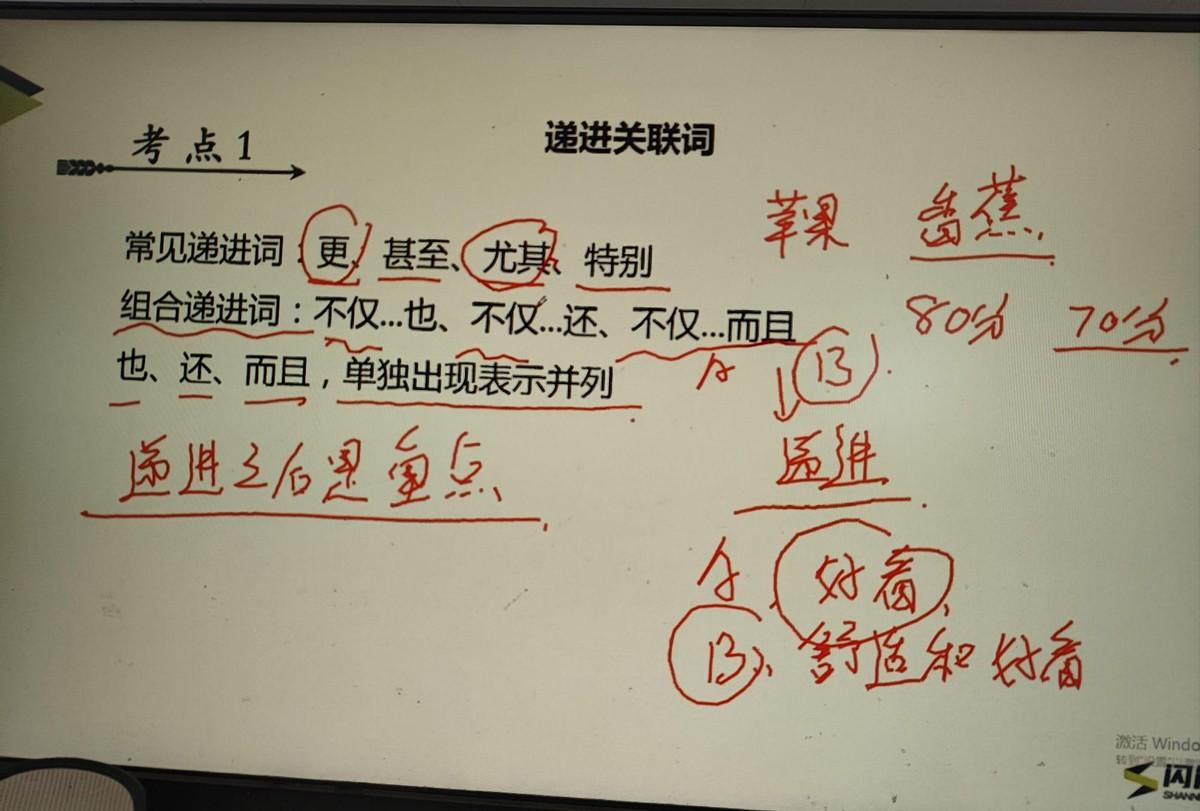 考点1
递进关联词
常见递进词：更、甚至、尤其、特别
组合递进词：不仅...也、不仅...还、不仅...而且
也、还、而且，单独出现表示并列
苹果 香蕉
80分 70分
A B
递进
递进之后是重点
A、好看、
B、舒适和好看
激活 Windo
闪
SHANN